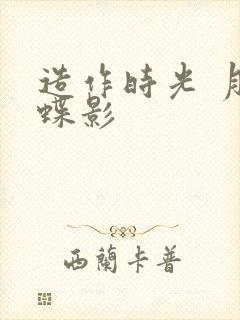 造作時光 月
蝶影
西蘭卡普